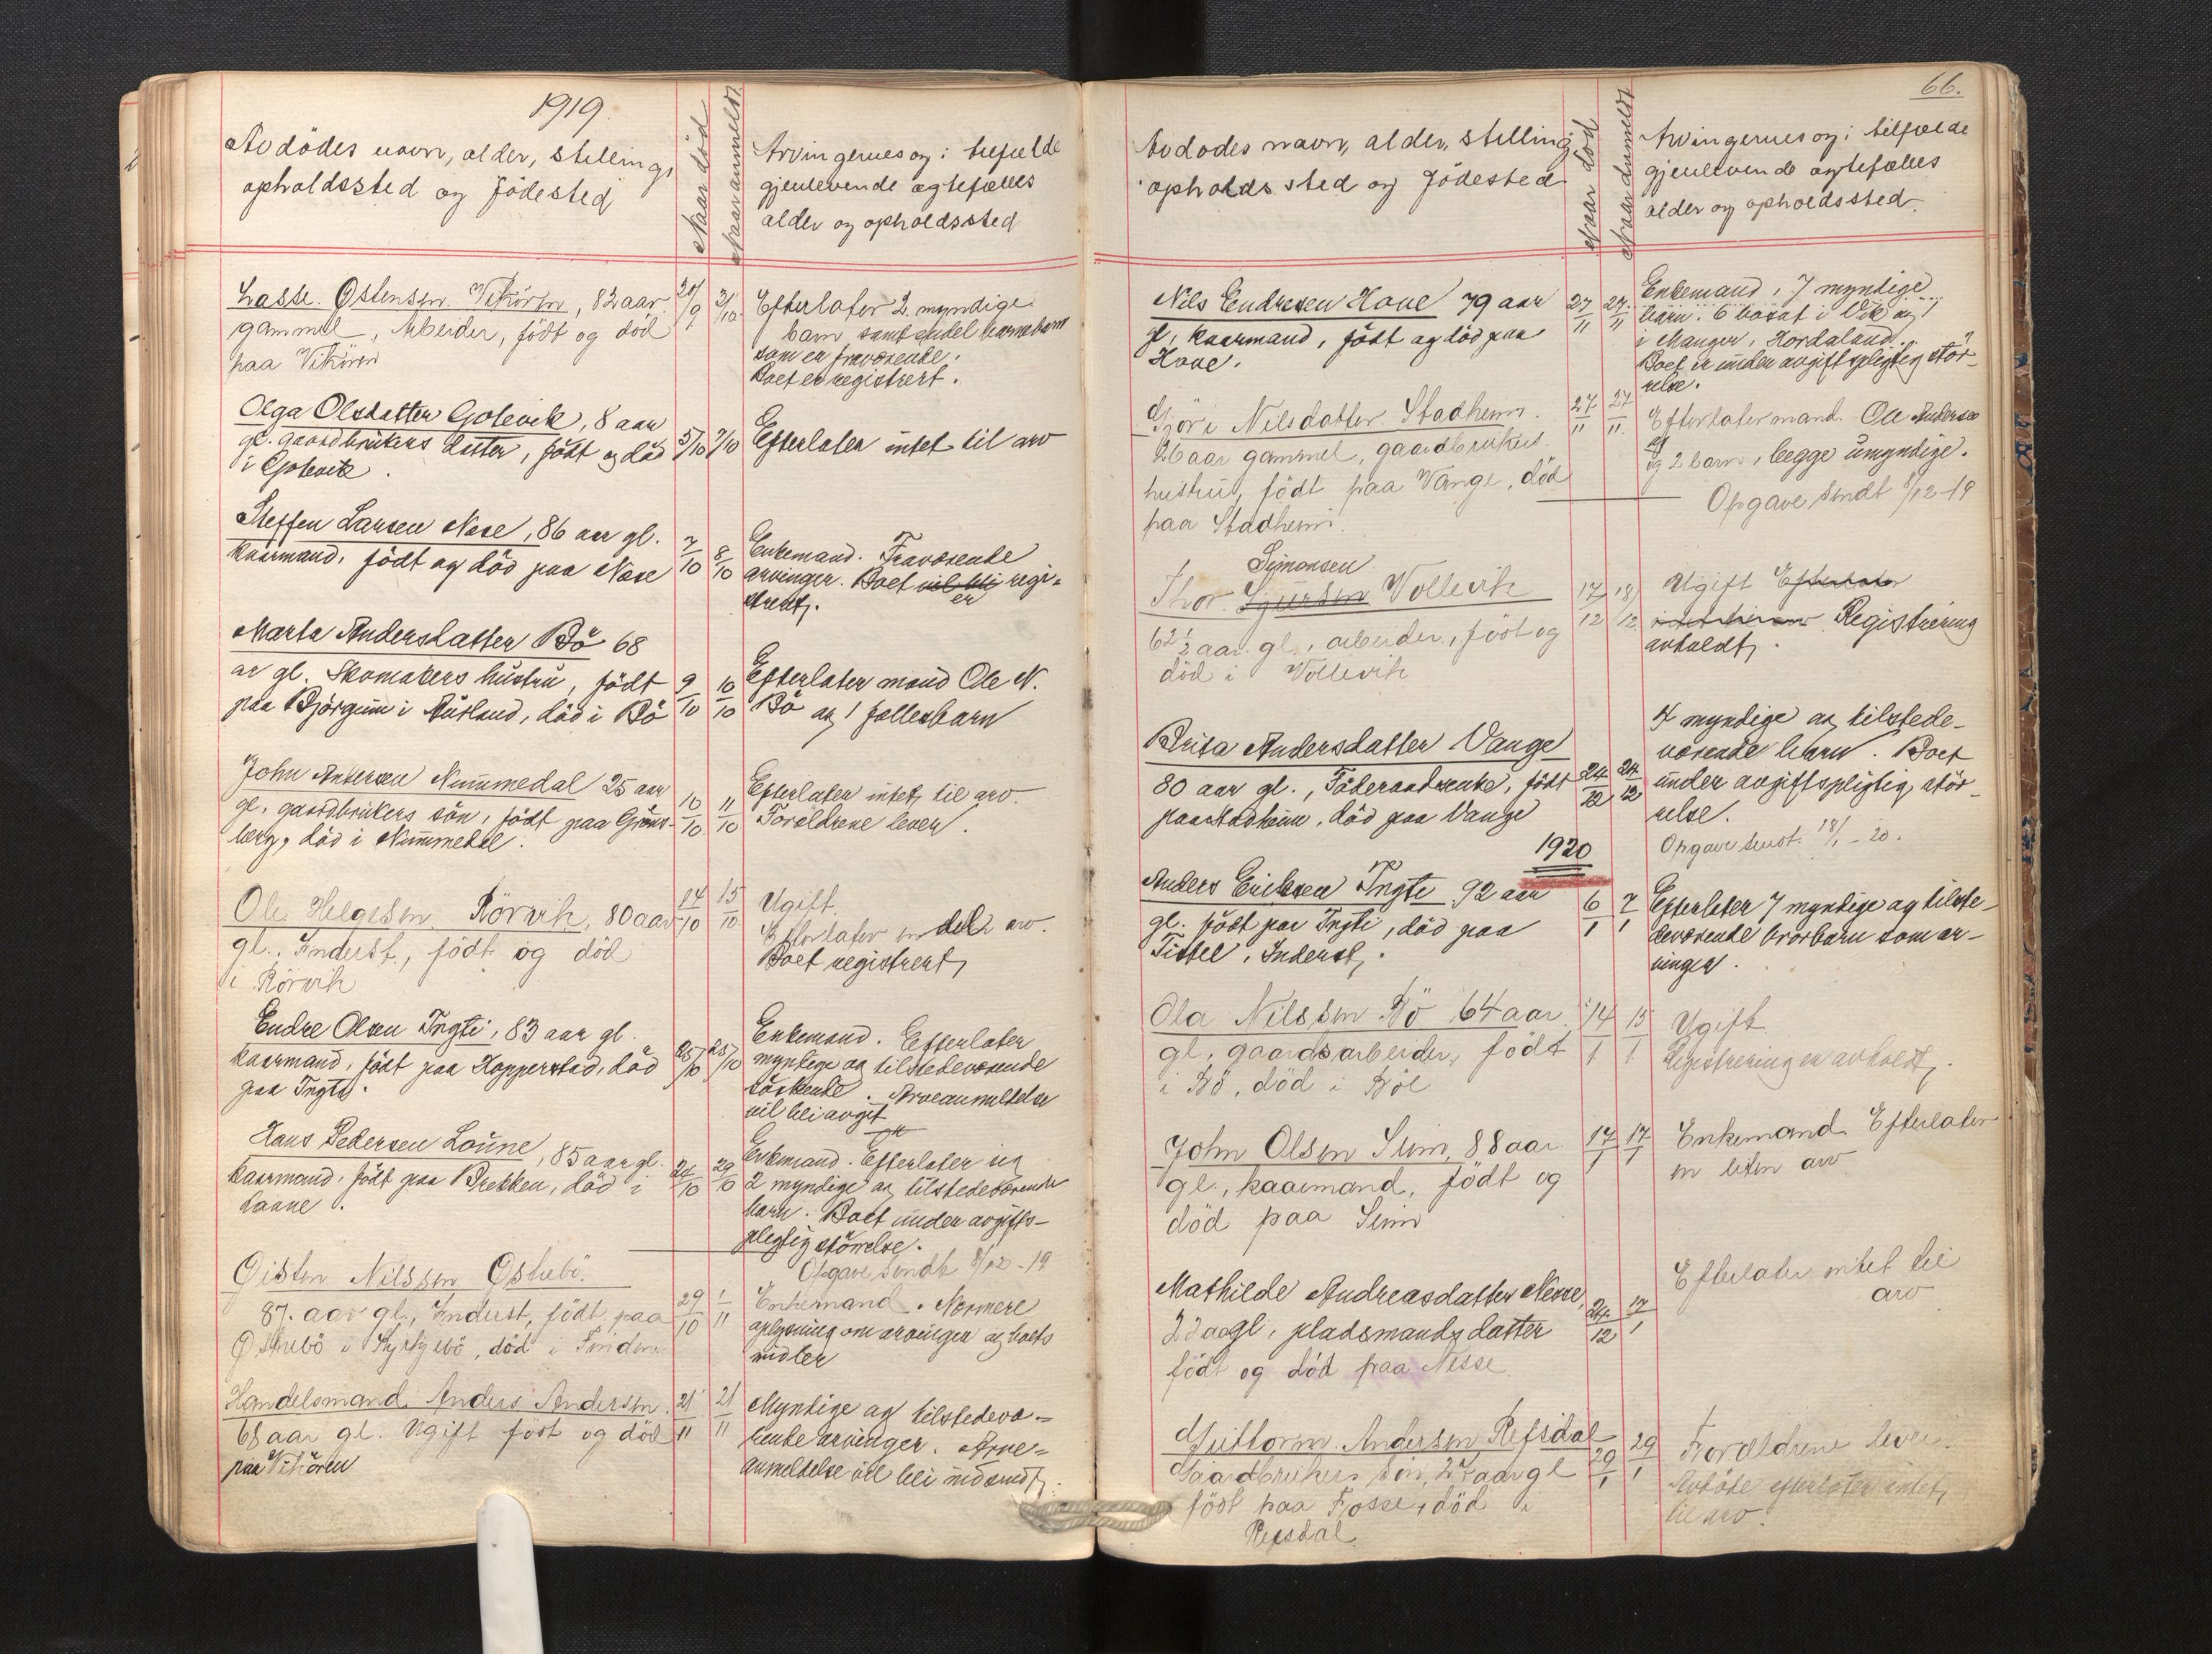 1919.
Avdödes navn, alder, stilling,
opholdssted og födested
Naar död
Naar anmeldt
Arvingernes og i tilfælde
gjenlevende ægtefælles
alder og opholdssted
Lasse Østensen Vikören, 82 aar
gammel, Arbeider, födt og död
paa Vikören
29/9
2/10
Efterlater 2 myndige
barn samt endel barnebarn
som er fraværende.
Boet er registrert.
Olga Olsdatter Gotevik, 8 aar
gl. gaardbrukers datter, födt og död
i Gotevik.
5/10
7/10
Efterlater intet til arv
Steffen Larsen Nese, 86 aar gl.
kaarmand, födt og död paa Nese
7/10
8/10
Enkemand. Fraværende
arvinger. Boet vil bli regi=
er
strert.
Marta Andersdatter Bö 68
ar gl. Skomakers hustru, födt
paa Bjørgum i Aurland, död i Bö
9/10
10/10
Efterlater mand Ole N.
Bö og 1 fællesbarn
John Andersen Nummedal 25 aar
gl. gaardbrukers sön, födt paa Gröns-
berg, död i Nummedal.
10/10
11/10
Efterlater intet til arv.
Forældrene lever.
Ole Helgesen Rörvik, 80 aar
gl., Inderst, födt og död
i Rörvik
14/10
15/10
Ugift.
Efterlater en del i arv.
Boet registrert
Endre Olsen Tryti, 83 aar gl.
kaarmand, födt paa Hopperstad, död
paa Tryti.
25/10
28/10
Enkemand. Efterlater
myndige og tilstedeværende
söskende. Arveanmeldelse
vil bli avgit
Hans Pedersen Lonne, 85 aar gl.
kaarmand, födt paa Brekken, död i
Lonne.
24/10
29/10
Enkemand. Efterlater sig
2 myndige og tilstedeværende
barn. Boet under avgifts-
pligtig störrelse.
Opgave sendt 8/12-19
Øisten Nilssen Østebö.
87 aar gl., Inderst, födt paa
Østrebö i Kyrkjebö, död i Finden
29/10
1/11
Enkemand. Nærmere
oplysning om arvinger og boets
midler
Handelsmand Anders Andersen
68 aar gl. Ugift födt og död
paa Vikören
21/11
21/11
Myndige og tilstedevæ-
rende arvinger. Arve=
anmeldelse vil bli indsendt.
66.
Avdödes navn, alder, stilling
opholdssted og födested
Naar död
Naar anmeldt
Arvingernes og i tilfælde
gjenlevende ægtefælles
alder og opholdssted.
Nils Endresen Hove 79 aar
gl, kaarmand, födt og död paa
Hove.
27/11
27/11
Enkemand, 7 myndige
barn. 6 bosat i Vik og 1
i Manger, Hordaland.
Boet er under avgiftspligtig stör-
relse.
Sjöri Nilsdatter Stadheim
26 aar gammel, gaardbrukers
hustru, födt paa Vange, död
paa Stadheim
27/11
27/11
Efterlater mand Ole Andersen
og 2 barn, begge umyndige.
Opgave sendt 8/12-19
Simonsen
Thor Sjursen Vollevik
62 1/2 aar gl., arbeider, födt og
död i Vollevik
17/12
18/12
Ugift Efterlater
Registrering
avholdt.
Brita Andersdatter Vange
80 aar gl., Föderaadsenke, födt
paa Stadheim, död paa Vange
24/12
24/12
4 myndige og tilstede-
værende barn. Boet
under avgiftspligtig stör-
relse.
Opgave sendt 18/1-20.
1920
Anders Eriksen Tryti 92 aar
gl. födt paa Tryti, död paa
Tistel, Inderst.
6/1
7/1
Efterlater 7 myndige og tilste-
deværende brorbarn som ar-
vinger.
Ola Nilssen Bö 64 aar
gl, gaardsarbeider, födt
i Bö, död i Böe
14/1
15/1
Ugift.
Registrering er avholdt.
John Olsen Seim, 88 aar
gl., kaarmand, födt og
död paa Seim
17/1
17/1
Enkemand Efterlater
en liten arv
Mathilde Andreasdatter Nesse,
22 aar gl, pladsmands datter
födt og död paa Nesse
24/12
17/1
Efterlater intet til
arv
Guttorm Andersen Refsdal
Gaardbrukers sön, 24 aar gl
födt paa Fosse, död i
Refsdal
29/1
29/1
Forældrene lever.
Avdöde efterlater intet
til arv.